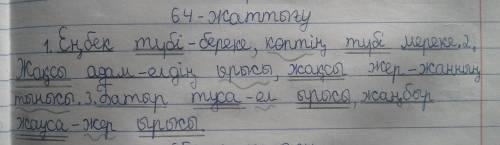 64-жаттығу
1. Еңбек түбі-береке, көптің түбі мереке. 2.
Жақсы адам-елдің ырысы, жақсы жер-жанның
тынысы. 3. Батыр туса-ел ырысы, жаңбыр
жауса-жер ырысы.